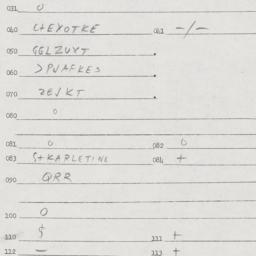 031 0
040 C+EYOTKE 041 -/-
050 GELZUYT .
060 >PUAFKES .
070 ZE/KT .
080 0
081 0 082 0
083 S+KARLETINE 084 +
090 QRR
100 0
110 $ 111 +
112 - 113 +